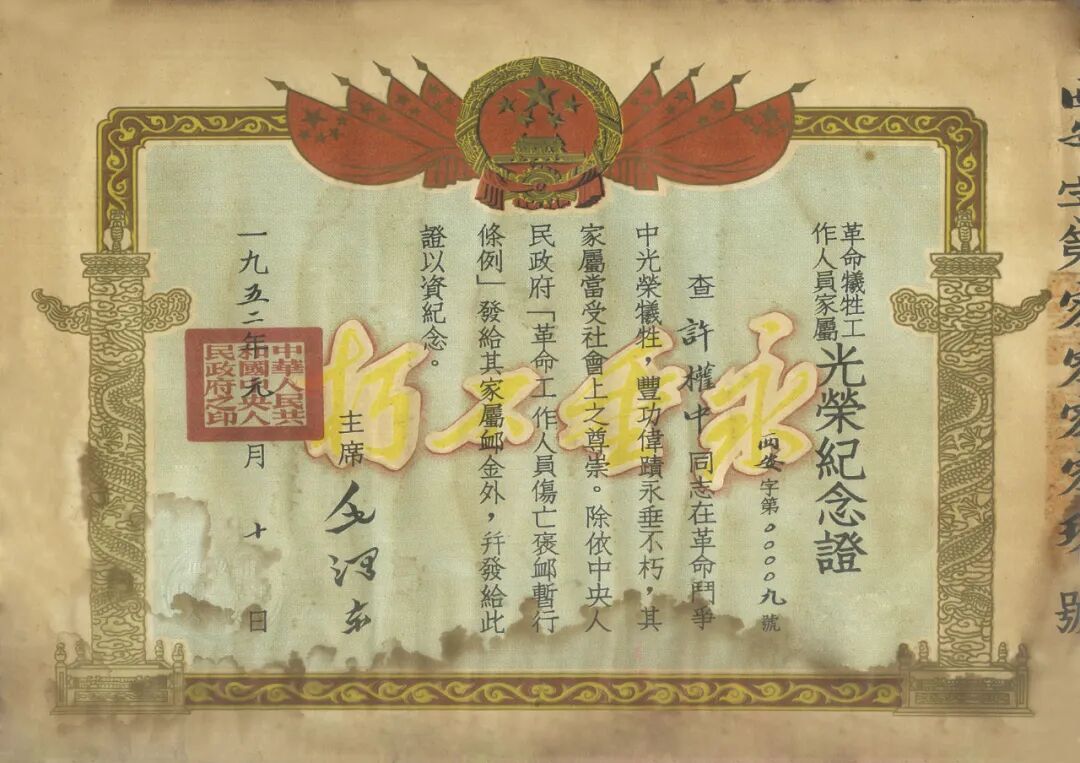 革命犧牲工
作人員家屬
光榮紀念證
西安字第〇〇〇〇九號
查許權中同志在革命鬥爭
中光榮犧牲，豐功偉蹟永垂不朽，其
家屬當受社會上之尊崇。除依中央人
民政府「革命工作人員傷亡褒卹暫行
條例」發給其家屬卹金外，幷發給此
證以資紀念。
主席 毛澤東
一九五二年元月十日
永垂不朽
中華人民共
和國中央人
民政府之印